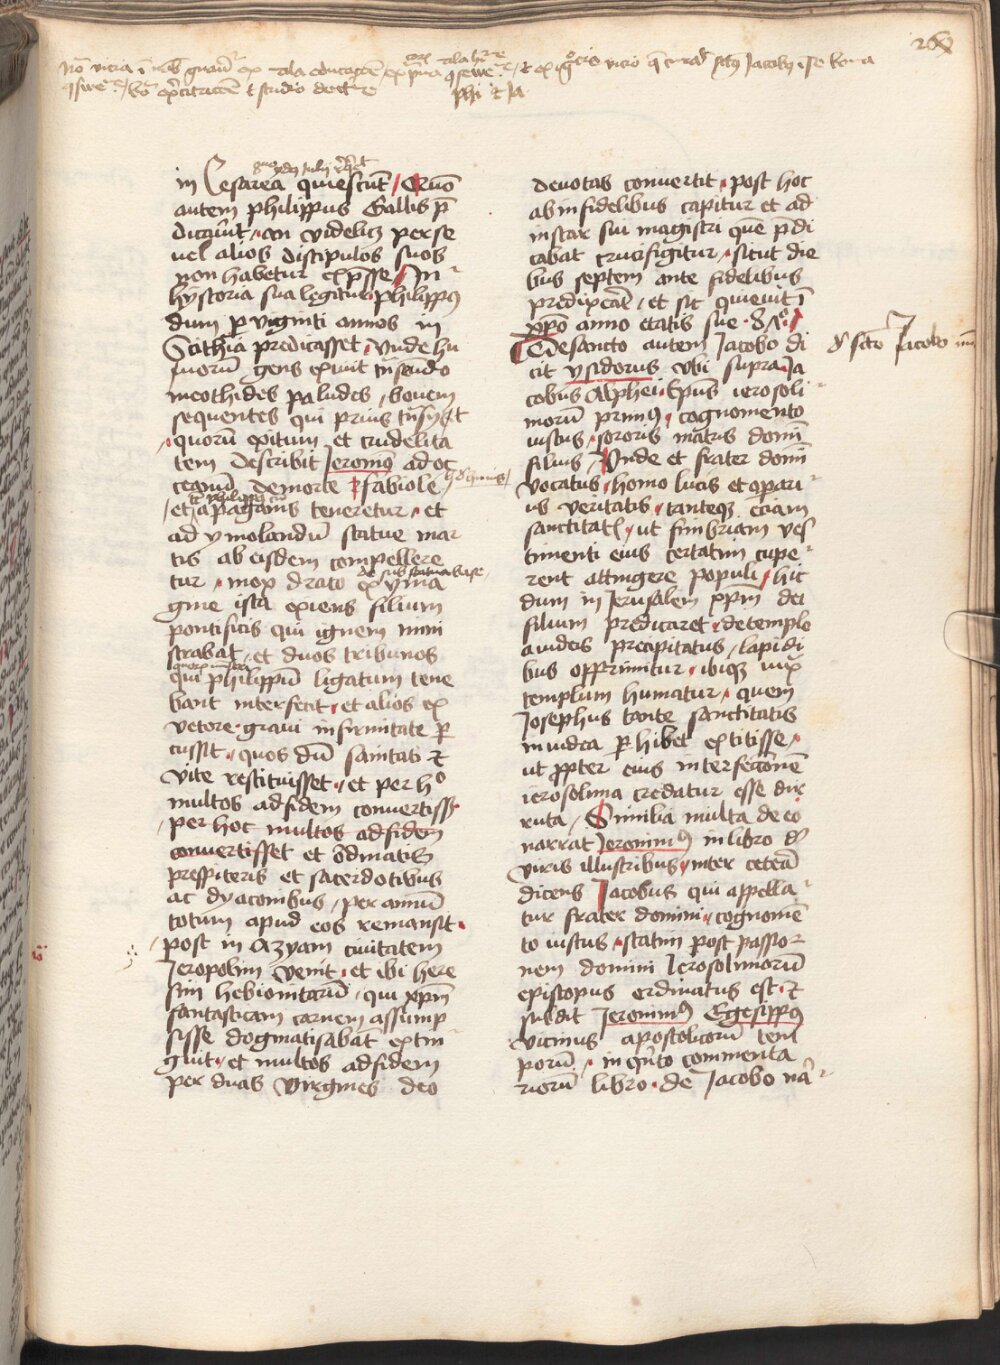 260
in Cesarea quiescūt / Quō
autem philippus Gallis p̄
dicauit · an videlicet per se
uel alios discipulos suos
non habetur exp̄sse / In
hystoria sua legitur · philippus
dum per viginti annos in
Scithia predicasset · Vnde hu
norū gens exiuit transeūdo
meothides paludes / bouem
sequentes qui prius
· quorū exitum et crudelita
tem describit Jeronimus ad oc
ceanū de morte fabiole
tūc philippus cū
/ et a paganis teneretur · et
ad ymolandū statue mar
tis ab eisdem compellere
de sub statua base
tur · mox draco ex yma
gine ista exiens filium
pontificis qui ignem mini
strabat · et duos tribunos
quorū ministri
qui philippū ligatum tene
bant interfecit · et alios ex
vetore graui infirmitate per
cussit · quos dū sanitati et
vite restituisset · et per hoc
multos ad fidem conuertiss
/ per hoc multos ad fidem
conuertisset et ordinatis
prespiteris et sacerdotibus
ac dyaconibus / per annū
totum apud eos remansit ·
/ post in Azyam ciuitatem
Jeropolim venit · et ibi here
sim hebionitarū · qui xpm̄
fantasticam carnem assump
sisse dogmatisabāt extin
guit · et multos ad fidem
per duas virgines deo
deuotas conuertit · post hoc
ab infidelibus capitur et ad
instar sui magistri quē p̄di
cabat crucifigitur · sicut die
bus septem ante fidelibus
predixerāt / et sic quieuit ī
xpō anno etatis sue · 87 ·
De sancto autem Jacobo di
cit ysidorus vbi supra · Ja
cobus Alphei · Ep̄us ierosoli
morū primus · cognomento
iustus · sororis matris domī
filius / Vnde et frater domī
vocatus · homo lucis et operari
us veritatis · tanteque eciam
sanctitatis · ut fimbriam ves
timenti eius certatim cupe
rent attingere populi · hic
dum in Jerusalem xpm̄ dei
filium predicaret · de templo
a iudeis precipitatus / lapidi
bus opprimitur · ibique iux
templum humatur · quem
Josephus tante sanctitatis
in iudea perhibet extitisse ·
ut propter eius interfectionē
ierosolima credatur esse diR
ruta / Similia multa de eo
narrat Jeronimus in libro de
viris illustribus · inter cetera
dicens Jacobus qui appella
tur frater domini · cognomē
to iustus · statim post passio
nem domini Jerosolimorū
episcopus ordinatus est · et
subdit Jeronimus Egesippus
vicinus apostolicorū tem
porū · in quīto commenta
riorū libro · de Jacobo nar
de sancto Jacobo mī